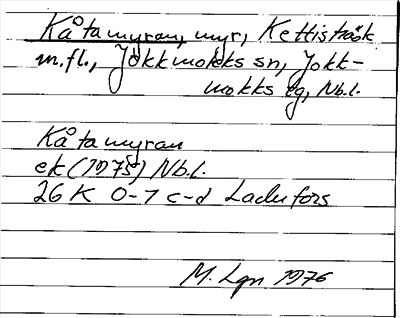 Kåtamyran, myr, Kettisträsk
m.fl., Jokkmokks sn, Jokk-
mokks lg, Nb.l.
Kåtamyran
ek (1975) Nb.l.
26 K 0-1 c-d Ladufors
M. Lgn 1976